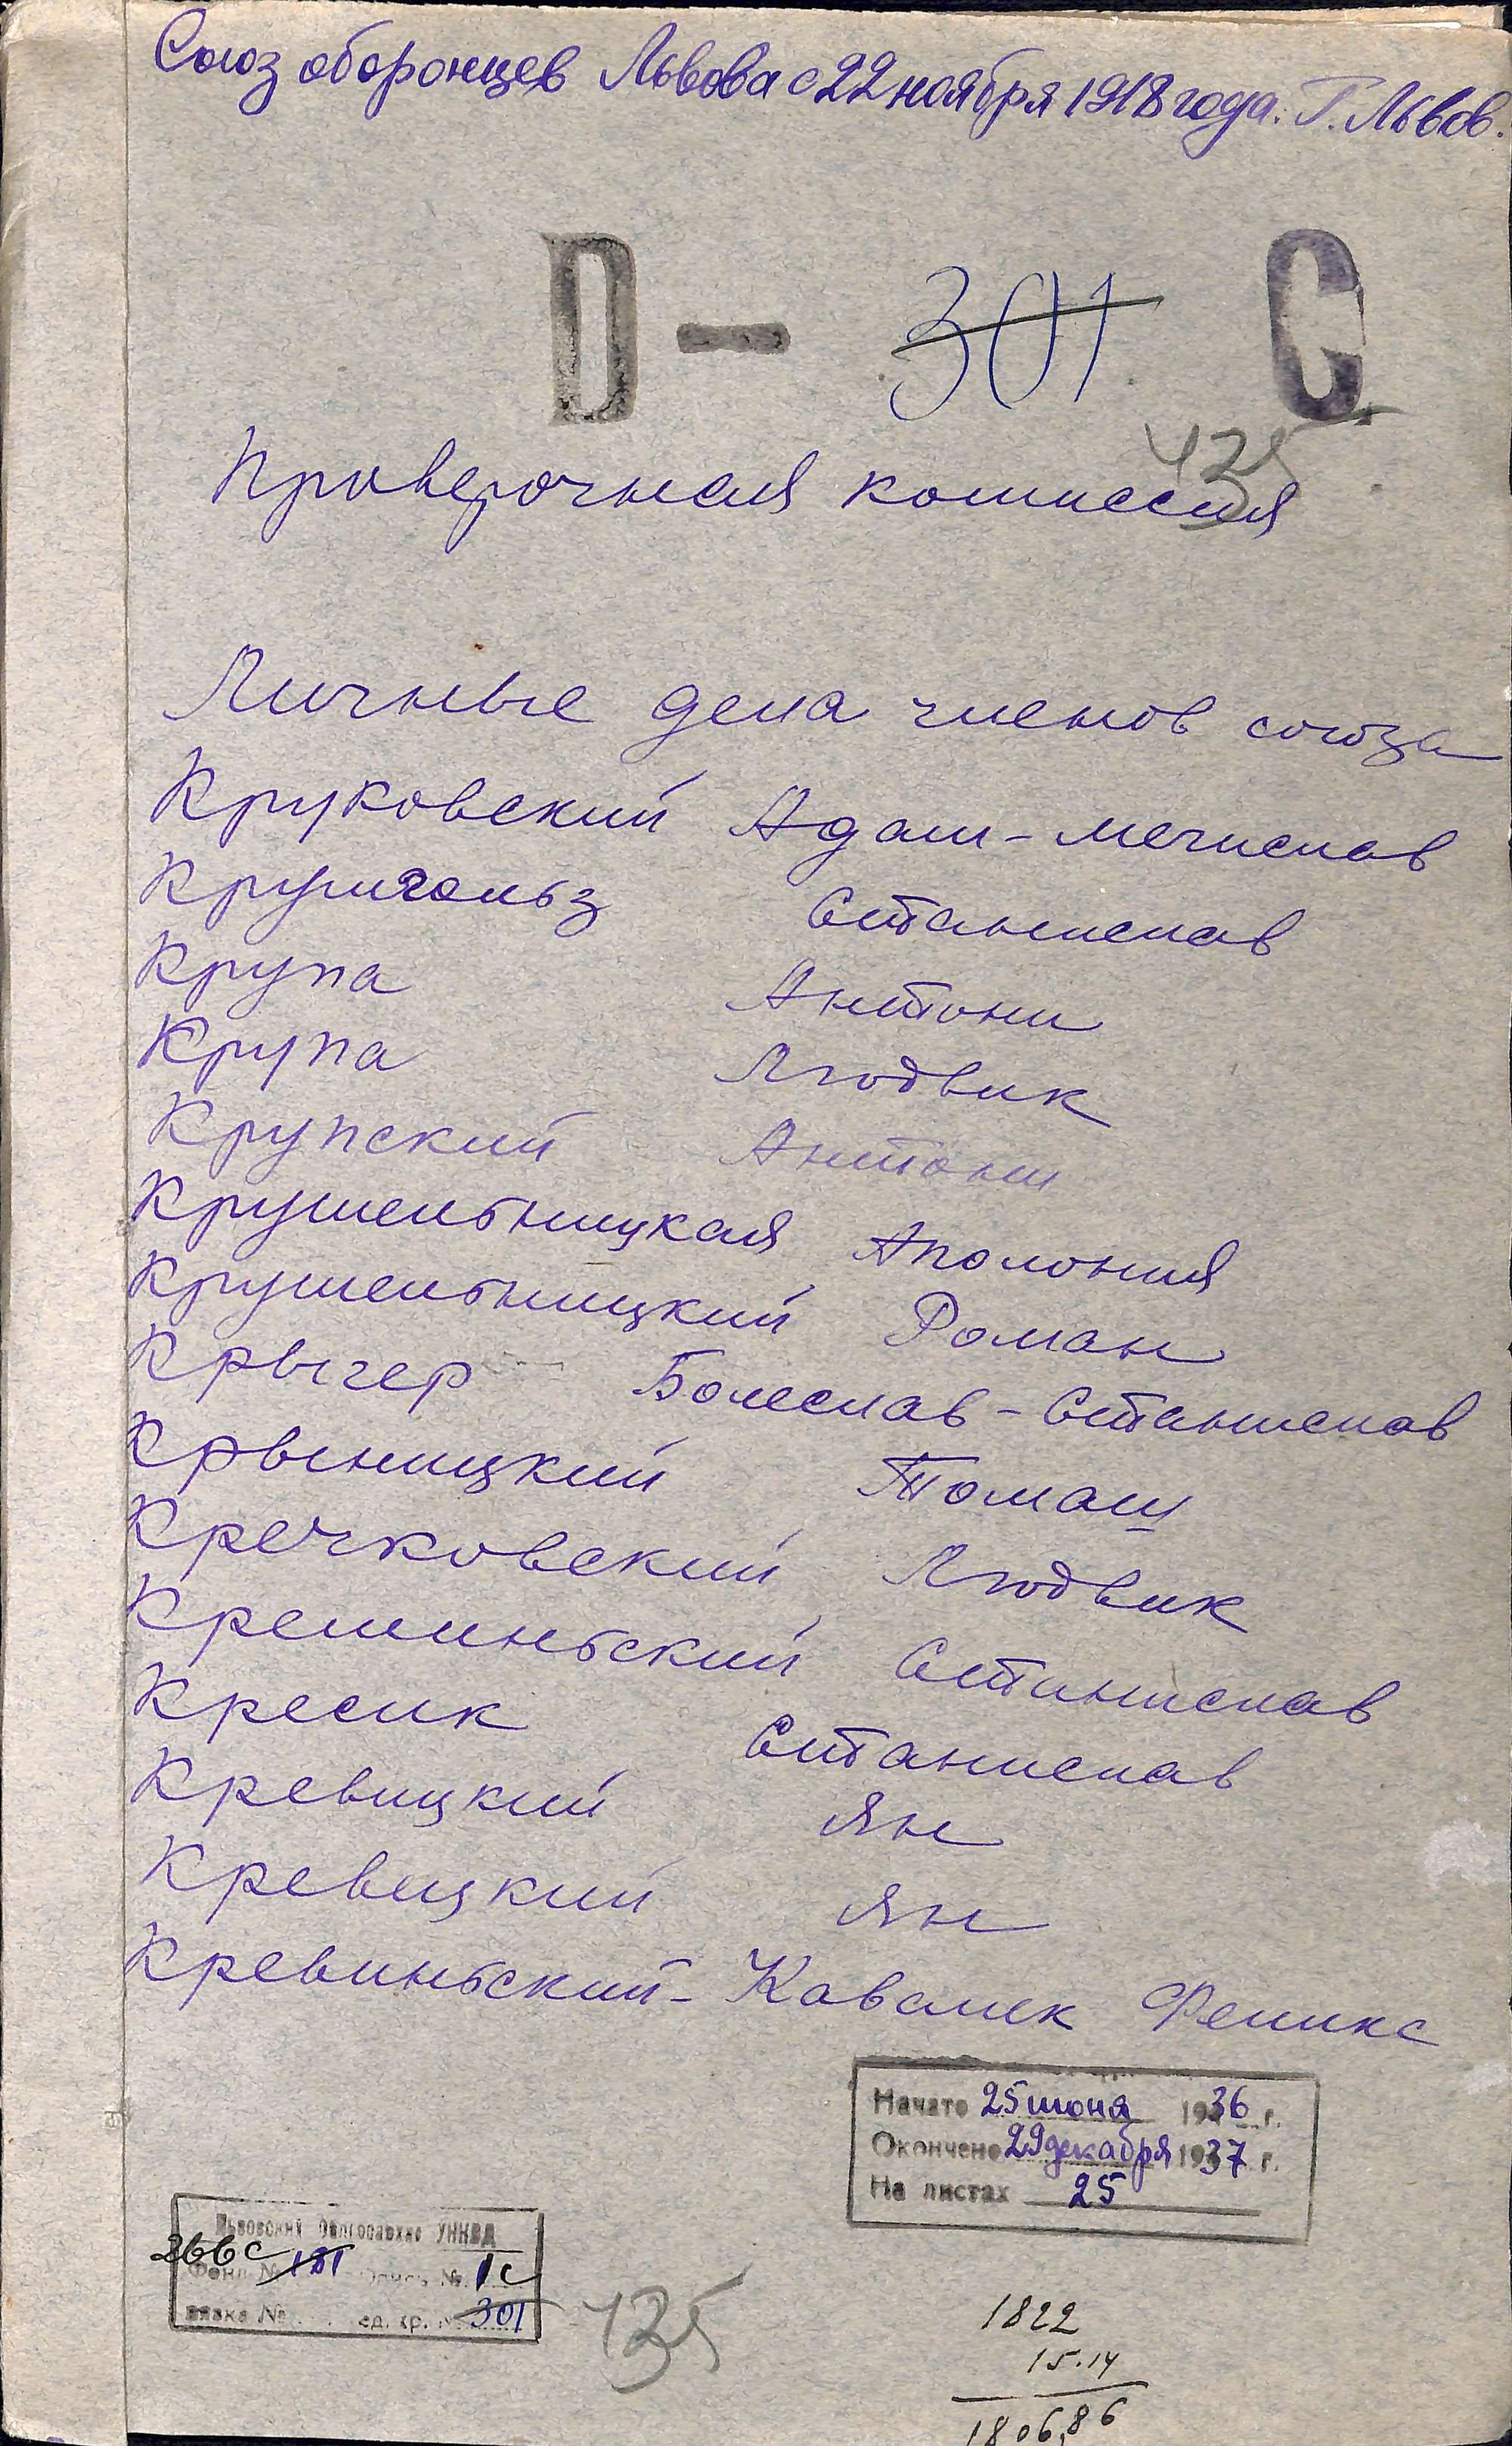 Союз оборонцев Львова с 22 ноября 1918 года. Г. Львов.
D — 301 С
435
Проверочная комиссия
Личные дела членов союза
Круковский Адам - Мечислав
Крумгольз Станислав
Крупа Антони
Крупа Людвик
Крупский Антони
Крушельницкая Аполония
Крушельницкий Роман
Крыгер Болеслав - Станислав
Крыницкий Томаш
Кречковский Людвик
Креминьский Станислав
Кресик Станислав
Кревицкий Ян
Кревицкий Ян
Кревиньский - Кавалек Феликс
Начато 25 июня 1936 г.
Окончено 29 декабря 1937 г.
На листах 25
Львовский Облгосархив УНКВД
266с
Фонд № 181 Опись № 1с
вязка № ед. хр. № 301
435
1822
15.14
1806,86